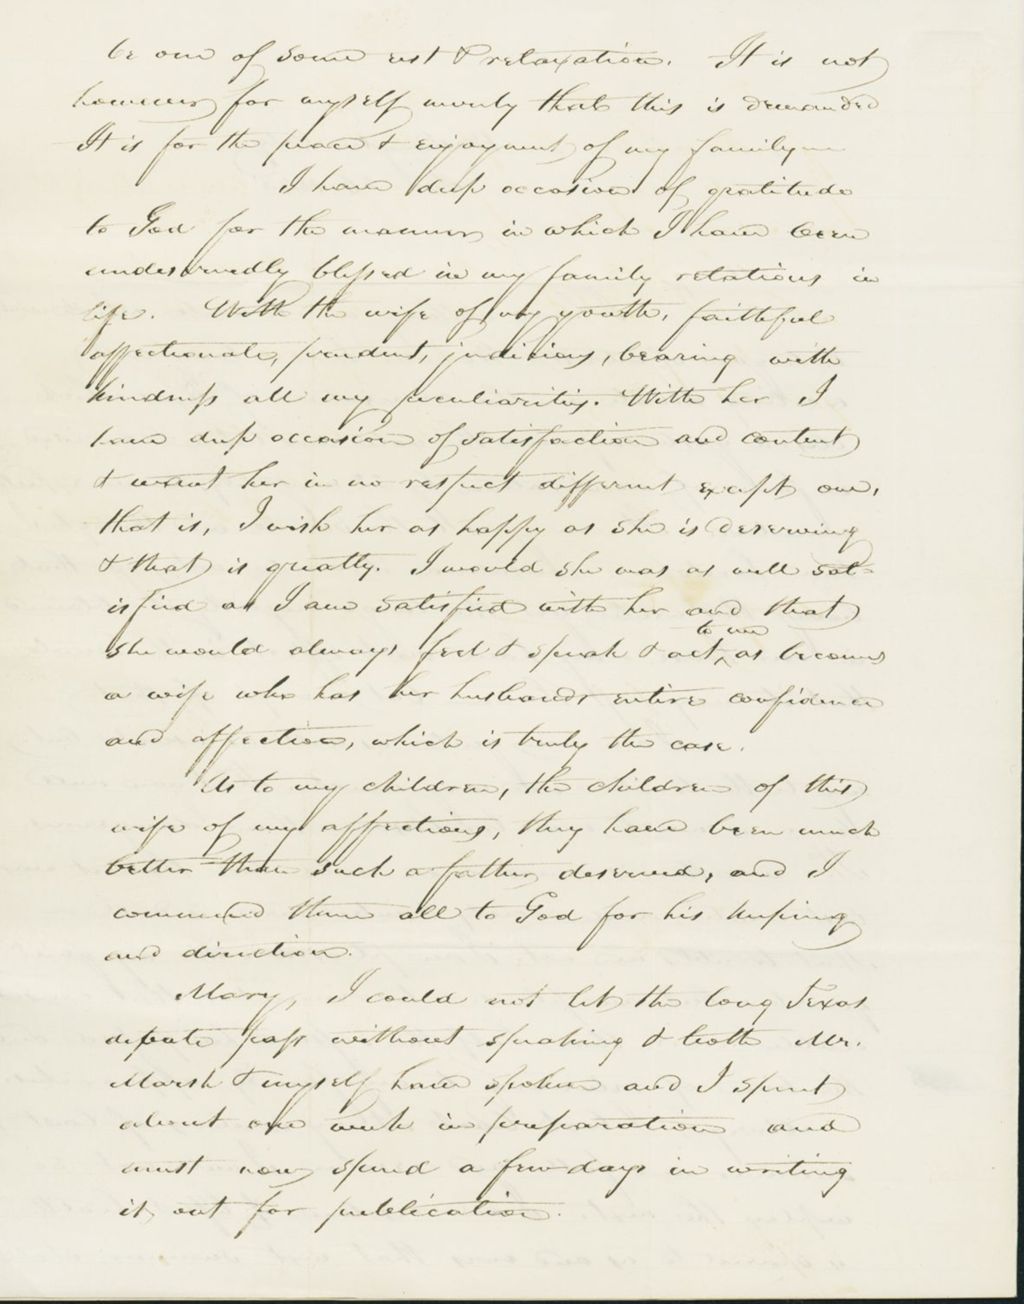 be one of some rest & relaxation. It is not
however for myself merely that this is demanded
It is for the peace & enjoyment of my family
I have deep occasion of gratitude
to God for the manner in which I have been
undeservedly blessed in my family relations in
life. With the wife of my youth, faithful
affectionate, prudent, judicious, bearing with
kindness all my peculiarities. With her I
have deep occasion of satisfaction and content
& want her in no respect different except one,
that is, I wish her as happy as she is deserving
& that is greatly. I would she was as well sat-
isfied as I am satisfied with her and that
she would always feel & speak & act, to me as becomes
a wife who has her husbands entire confidence
and affection, which is truly the case.
As to my children, the children of this
wife of my affections, they have been much
better than such a father deserved, and I
commend them all to God for his keeping
and direction.
Mary, I could not let the long Texas
debate pass without speaking & both Mr.
Marsh & myself have spoken and I spent
about one week in preparation and
must now spend a few days in writing
it out for publication.